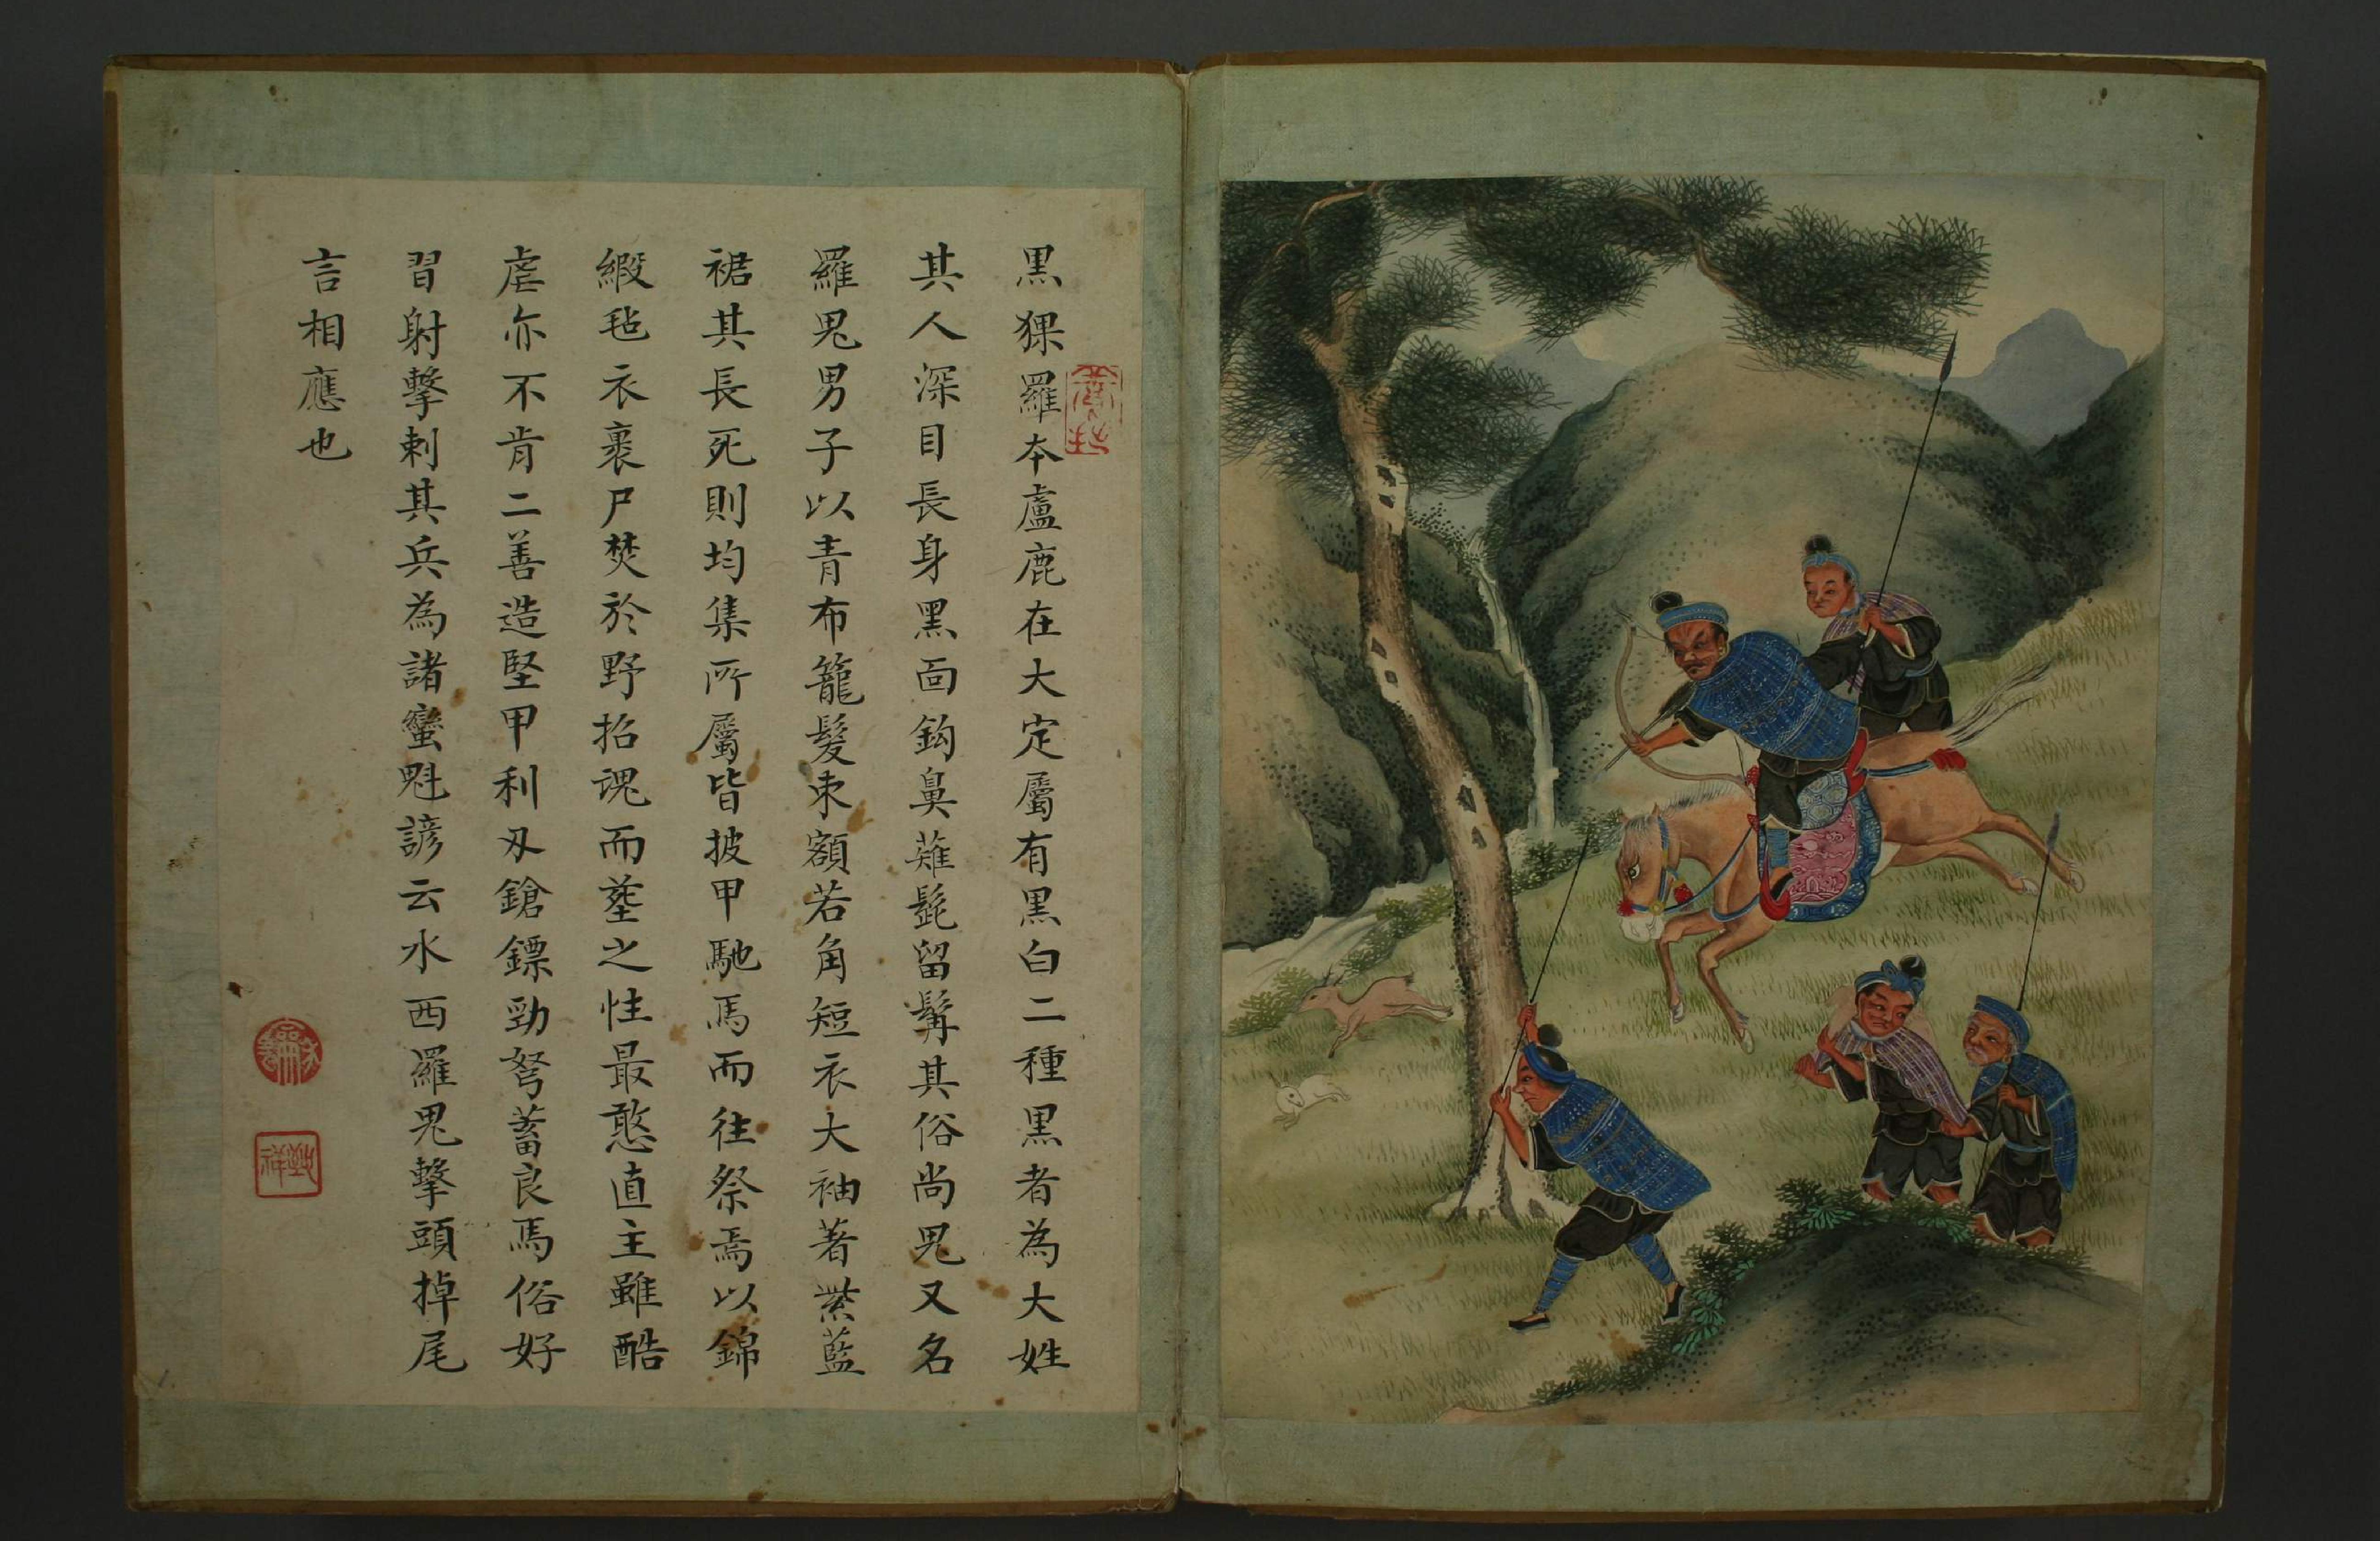 黒猓羅本盧鹿在大定屬有黒白二種黒者為大姓
其人深目長身黒面鈎鼻薙髭留髯其俗尚鬼又名
羅鬼男子以青布籠髮束額若角短衣大袖著紫藍
裙其長死則均集所屬皆披甲馳馬而往祭焉以錦
緞毡衣裹尸焚於野招魂而塟之性最憨直主雖酷
虐亦不肯二善造堅甲利刄鎗鏢勁弩蓄良馬俗好
習射擊刺其兵為諸蠻魁諺云水西羅鬼擊頭掉尾
言相應也